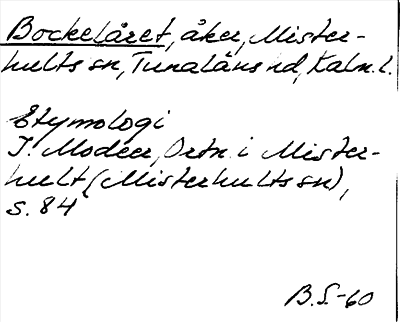 Bockelåret, åker, Mister-
hults sn, Tunaläns hd, Kalm. l.
Etymologi
I. Modéer, Ortn. i Mister-
hult (Misterhults sn),
s. 84
B.S.-60